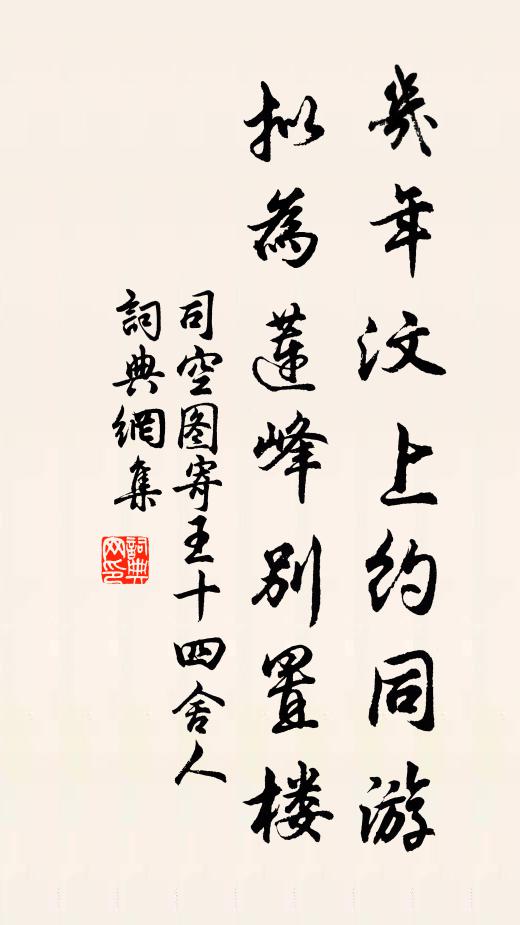 幾年汶上約同游
拟為蓮峰別置楼
司空图寄王十四舍人
詞典網集
詞典网印